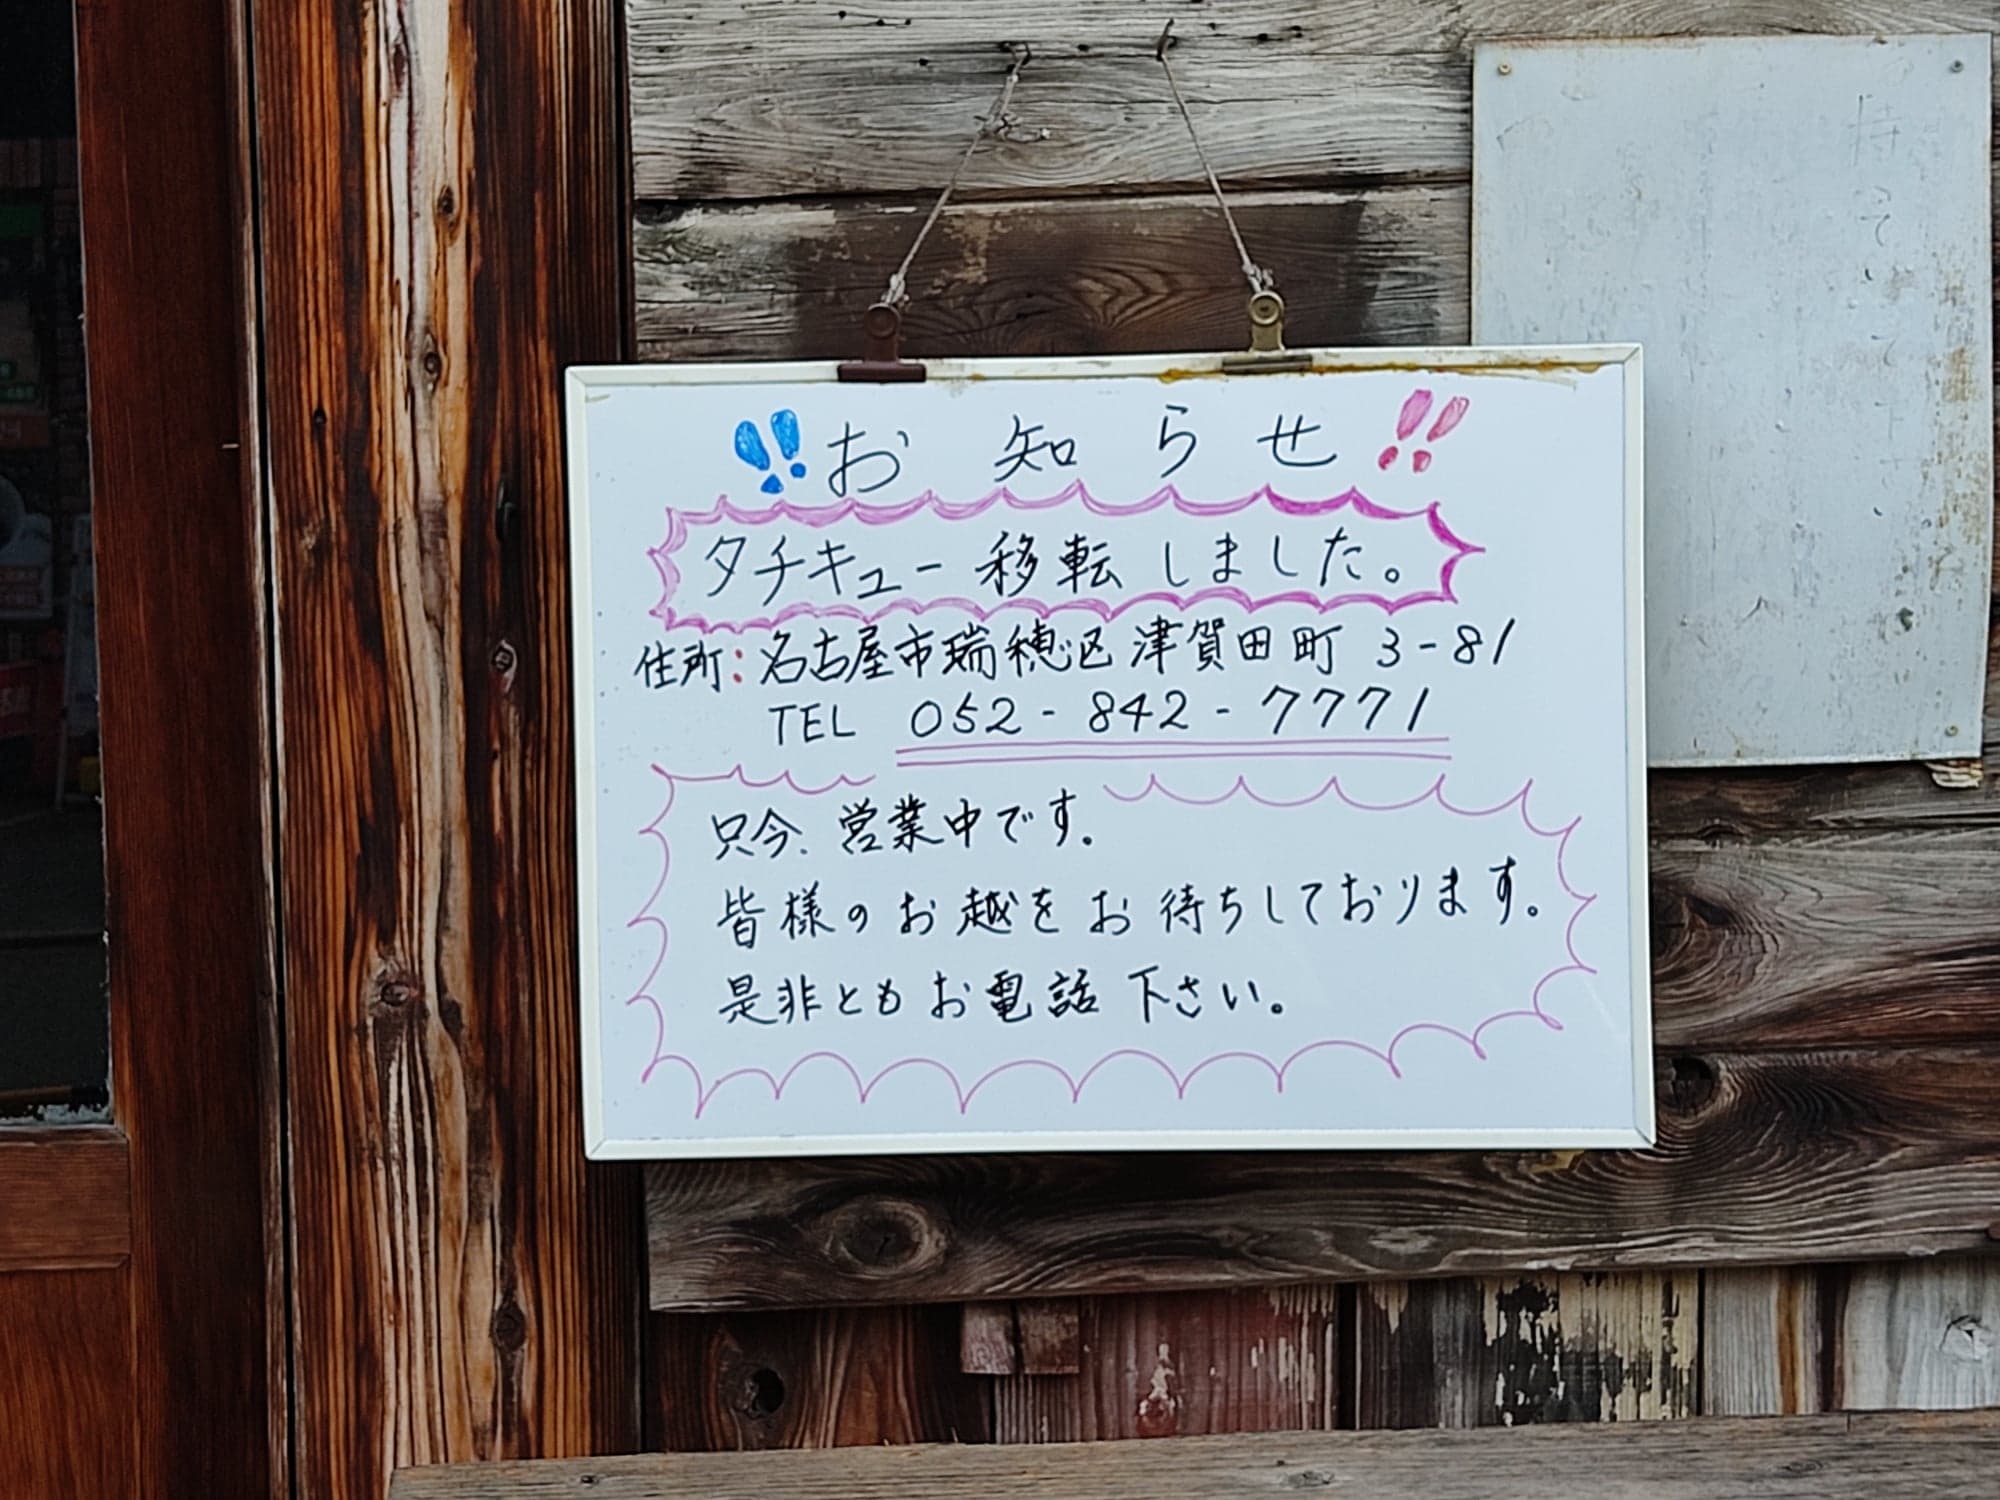 ‼お知らせ‼
タチキュー移転しました。
住所：名古屋市瑞穂区津賀田町3-81
TEL 052-842-7771
只今、営業中です。
皆様のお越をお待ちしております。
是非ともお電話下さい。